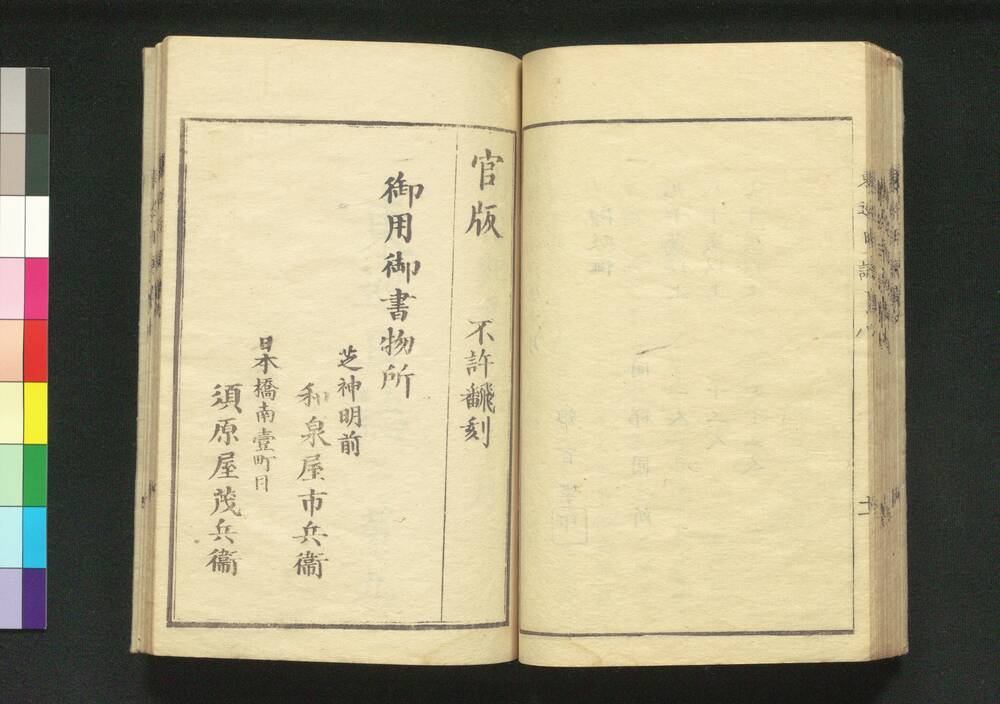 官版　不許飜刻
御用御書物所
芝神明前
和泉屋市兵衞
日本橋南壹町目
須原屋茂兵衞